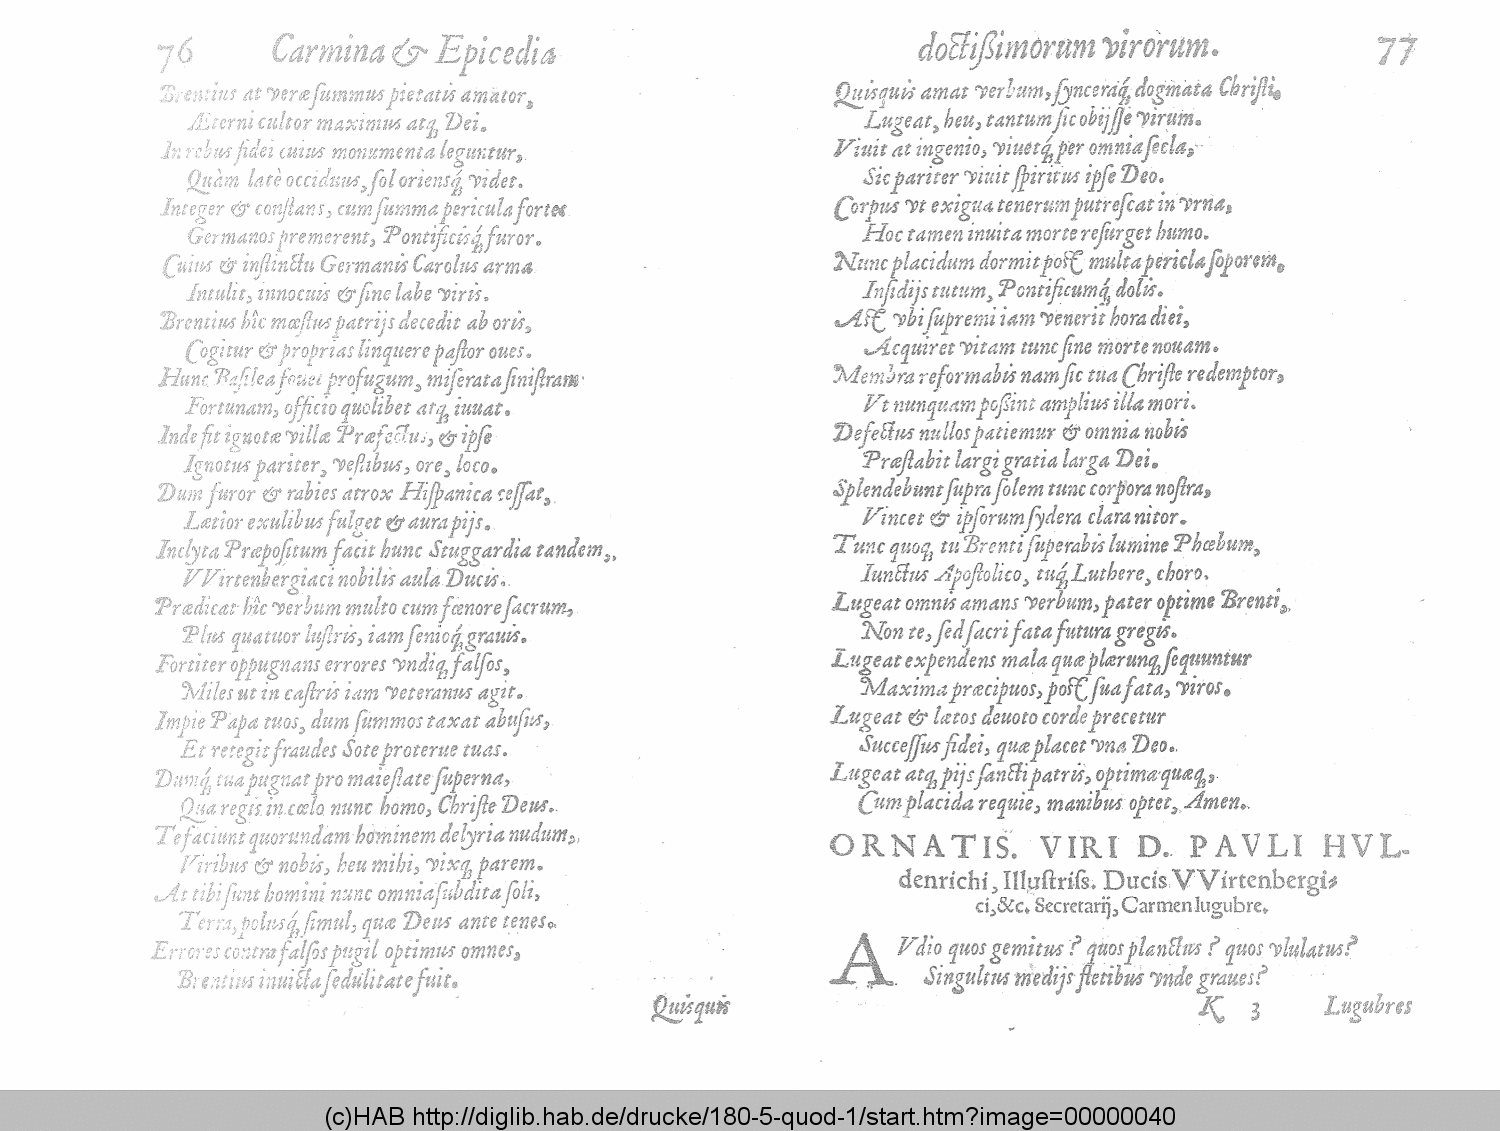 76 Carmina & Epicedia
Brentius at veræ summus pietatis amator,
Æterni cultor maximus atq; Dei.
In rebus fidei cuius monumenta leguntur,
Quàm latè occiduus, sol oriensq́; videt.
Integer & constans, cum summa pericula fortes
Germanos premerent, Pontificisq́; furor.
Cuius & instinctu Germanis Carolus arma
Intulit, innocuis & sine labe viris.
Brentius hîc mœstus patrijs decedit ab oris,
Cogitur & proprias linquere pastor oues.
Hunc Basilea fouet profugum, miserata sinistram
Fortunam, officio quolibet atq; iuuat.
Inde fit ignotæ villæ Præfectus, & ipse
Ignotus pariter, vestibus, ore, loco.
Dum furor & rabies atrox Hispanica cessat,
Lætior exulibus fulget & aura pijs.
Inclyta Præpositum facit hunc Stuggardia tandem,
VVirtenbergiaci nobilis aula Ducis.
Prædicat hîc verbum multo cum fœnore sacrum,
Plus quatuor lustris, iam senioq́; grauis.
Fortiter oppugnans errores vndiq; falsos,
Miles ut in castris iam veteranus agit.
Impie Papa tuos, dum summos taxat abusus,
Et retegit fraudes Sote proterue tuas.
Dumq́; tua pugnat pro maiestate superna,
Qua regis in cœlo nunc homo, Christe Deus.
Te faciunt quorundam hominem delyria nudum,
Viribus & nobis, heu mihi, vixq; parem.
At tibi sunt homini nunc omnia subdita soli,
Terra, polusq́; simul, quæ Deus ante tenes.
Errores contra falsos pugil optimus omnes,
Brentius inuicta sedulitate fuit.
Quisquis
doctissimorum virorum. 77
Quisquis amat verbum, synceraq́; dogmata Christi,
Lugeat, heu, tantum sic obijsse virum.
Viuit at ingenio, viuetq́; per omnia secla,
Sic pariter viuit spiritus ipse Deo.
Corpus vt exigua tenerum putrescat in vrna,
Hoc tamen inuita morte resurget humo.
Nunc placidum dormit post multa pericla soporem,
Insidijs tutum, Pontificumq́; dolis.
Ast vbi supremi iam venerit hora diei,
Acquiret vitam tunc sine morte nouam.
Membra reformabis nam sic tua Christe redemptor,
Vt nunquam possint amplius illa mori.
Defectus nullos patiemur & omnia nobis
Præstabit largi gratia larga Dei.
Splendebunt supra solem tunc corpora nostra,
Vincet & ipsorum sydera clara nitor.
Tunc quoq; tu Brenti superabis lumine Phœbum,
Iunctus Apostolico, tuq́; Luthere, choro.
Lugeat omnis amans verbum, pater optime Brenti,
Non te, sed sacri fata futura gregis.
Lugeat expendens mala quæ plærunq; sequuntur
Maxima præcipuos, post sua fata, viros.
Lugeat & lætos deuoto corde precetur
Successus fidei, quæ placet vna Deo.
Lugeat atq; pijs sancti patris, optima quæq;,
Cum placida requie, manibus optet, Amen.
ORNATIS. VIRI D. PAVLI HVL-
denrichi, Illustriss. Ducis VVirtenbergi-
ci, &c. Secretarij, Carmen lugubre.
AVdio quos gemitus? quos planctus? quos vlulatus?
Singultus medijs fletibus vnde graues?
K 3 Lugubres
(c)HAB http://diglib.hab.de/drucke/180-5-quod-1/start.htm?image=00000040